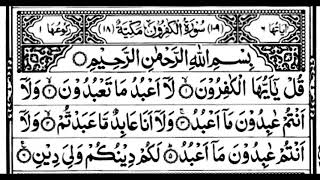 اٰيَاتُهَا ٦ (١٠٩) سُوْرَةُ الْكٰفِرُوْنَ مَكِّيَّةٌ (١٨) رُكُوْعُهَا ١
بِسْمِ اللّٰهِ الرَّحْمٰنِ الرَّحِيْمِ
قُلْ يٰٓاَيُّهَا الْكٰفِرُوْنَ ۙ لَآ اَعْبُدُ مَا تَعْبُدُوْنَ ۙ وَلَآ
اَنْتُمْ عٰبِدُوْنَ مَآ اَعْبُدُ ۚ وَلَآ اَنَا عَابِدٌ مَّا عَبَدْتُّمْ ۙ وَلَآ
اَنْتُمْ عٰبِدُوْنَ مَآ اَعْبُدُ ۗ لَكُمْ دِيْنُكُمْ وَلِيَ دِيْنِ